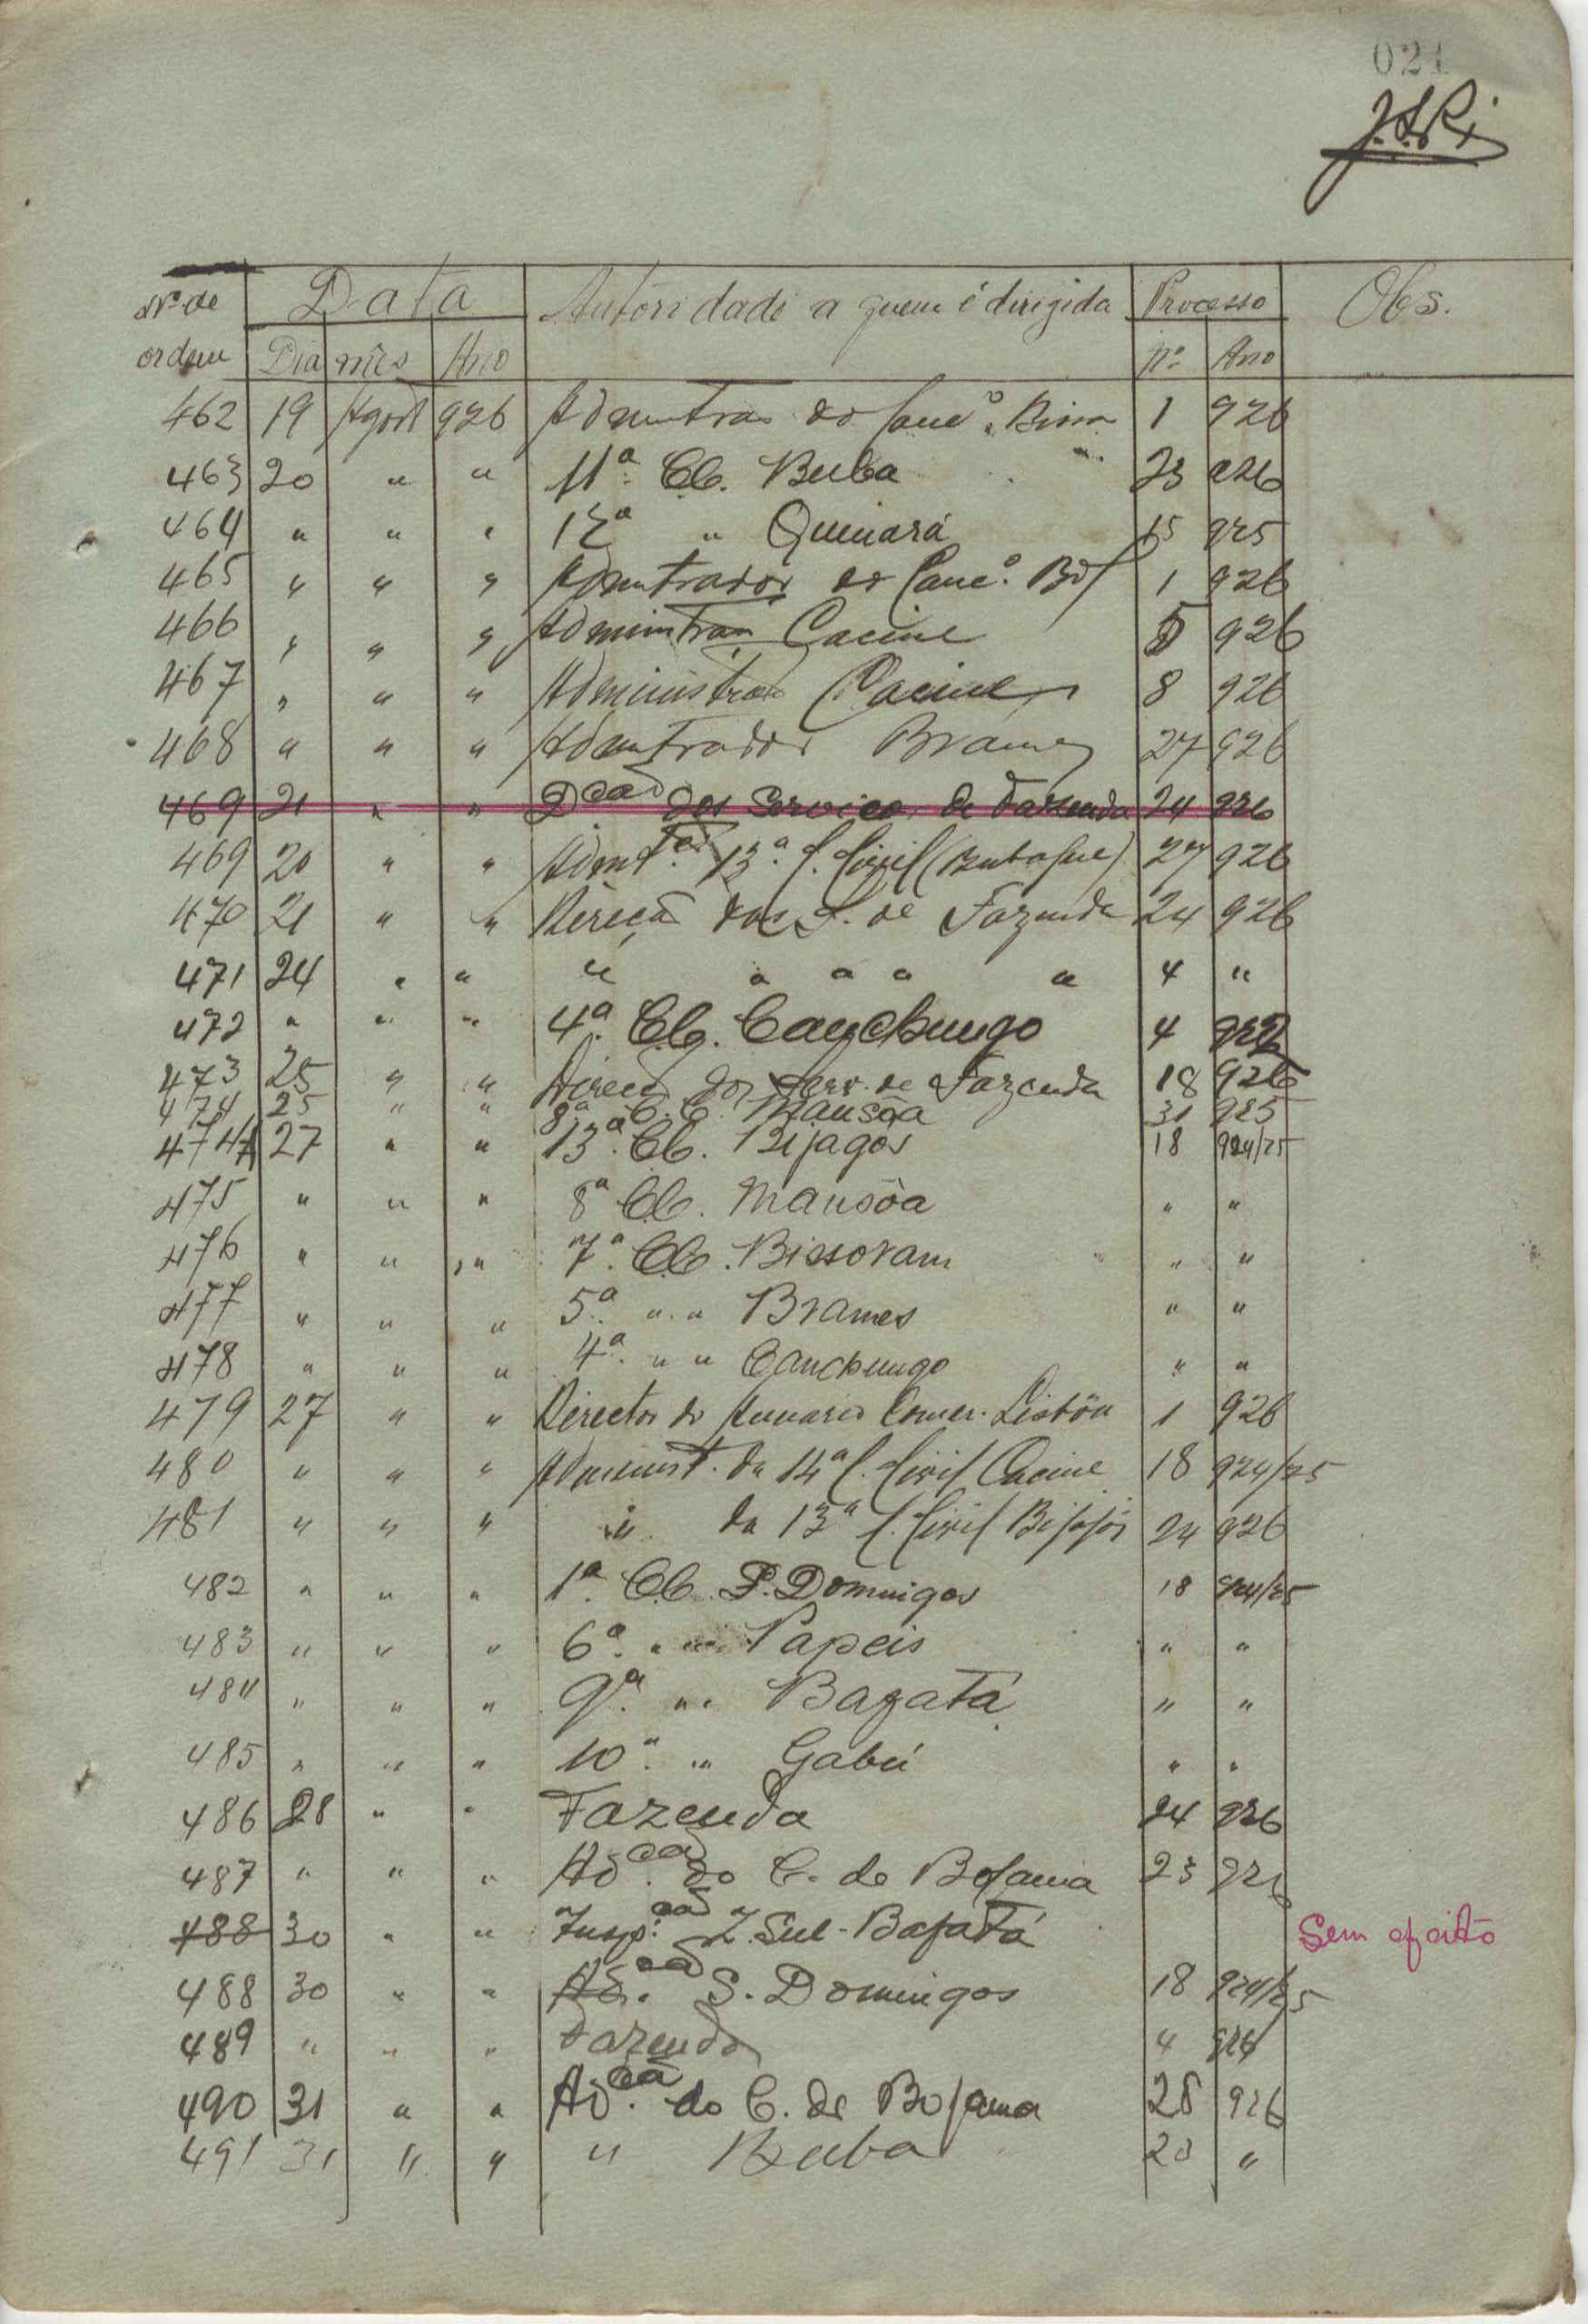 021
Nº de Data Autoridade a quem é dirigida Processo Obs.
ordem Dia mês Ano nº Ano
462 19 Agost 926 do Conc.º 1 926
463 20 " " 11ª C.C. Buba 23 926
464 " " " 12ª " Quinará 15 925
465 " " " Admtrador do Conc.º Bol 1 926
466 " " " Cacine 5 926
467 " " " Cacine 8 926
468 " " " Admtrador Brames 27 926
469 21 " " Dcão dos Serviços de Fazenda 24 926
469 20 " " 13ª C. Civil 27 926
470 21 " " Direcã dos S. de Fazenda 24 926
471 24 " " " " " " " 4 "
472 " " " 4ª C.C. Canchungo 4
473 25 " " Direcã dos Serv. de Fazenda 18 926
474 25 " " 8ª C.C. Mansôa 31 925
474A 27 " " 13ª C.C. Bijagós 18 924/25
475 " " " 8ª C.C. Mansôa " "
476 " " " 7ª C.C. Bissoram " "
477 " " " 5ª " " Brames " "
478 " " " 4ª " " Canchungo " "
479 27 " " Director do Anuario Comer. Lisbôa 1 926
480 " " " Administ. da 14ª C. Civil Cacine 18 924/25
481 " " " " da 13ª C. Civil Bijagós 24 926
482 " " " 1ª C.C. S. Domingos 18 924/25
483 " " " 6ª " " Papeis " "
484 " " " 9ª " " Bafatá " "
485 " " " 10ª " " Gabú " "
486 28 " " Fazenda 24 926
487 " " " Adcão do C. de Bolama 23 926
488 30 " " Inspcão Z. Sul - Bafatá Sem efeito
488 30 " " Adcão S. Domingos 18 924/25
489 " " " Fazenda 4
490 31 " " Adcão do C. de Bolama 28 926
491 31 " " " Buba 20 "